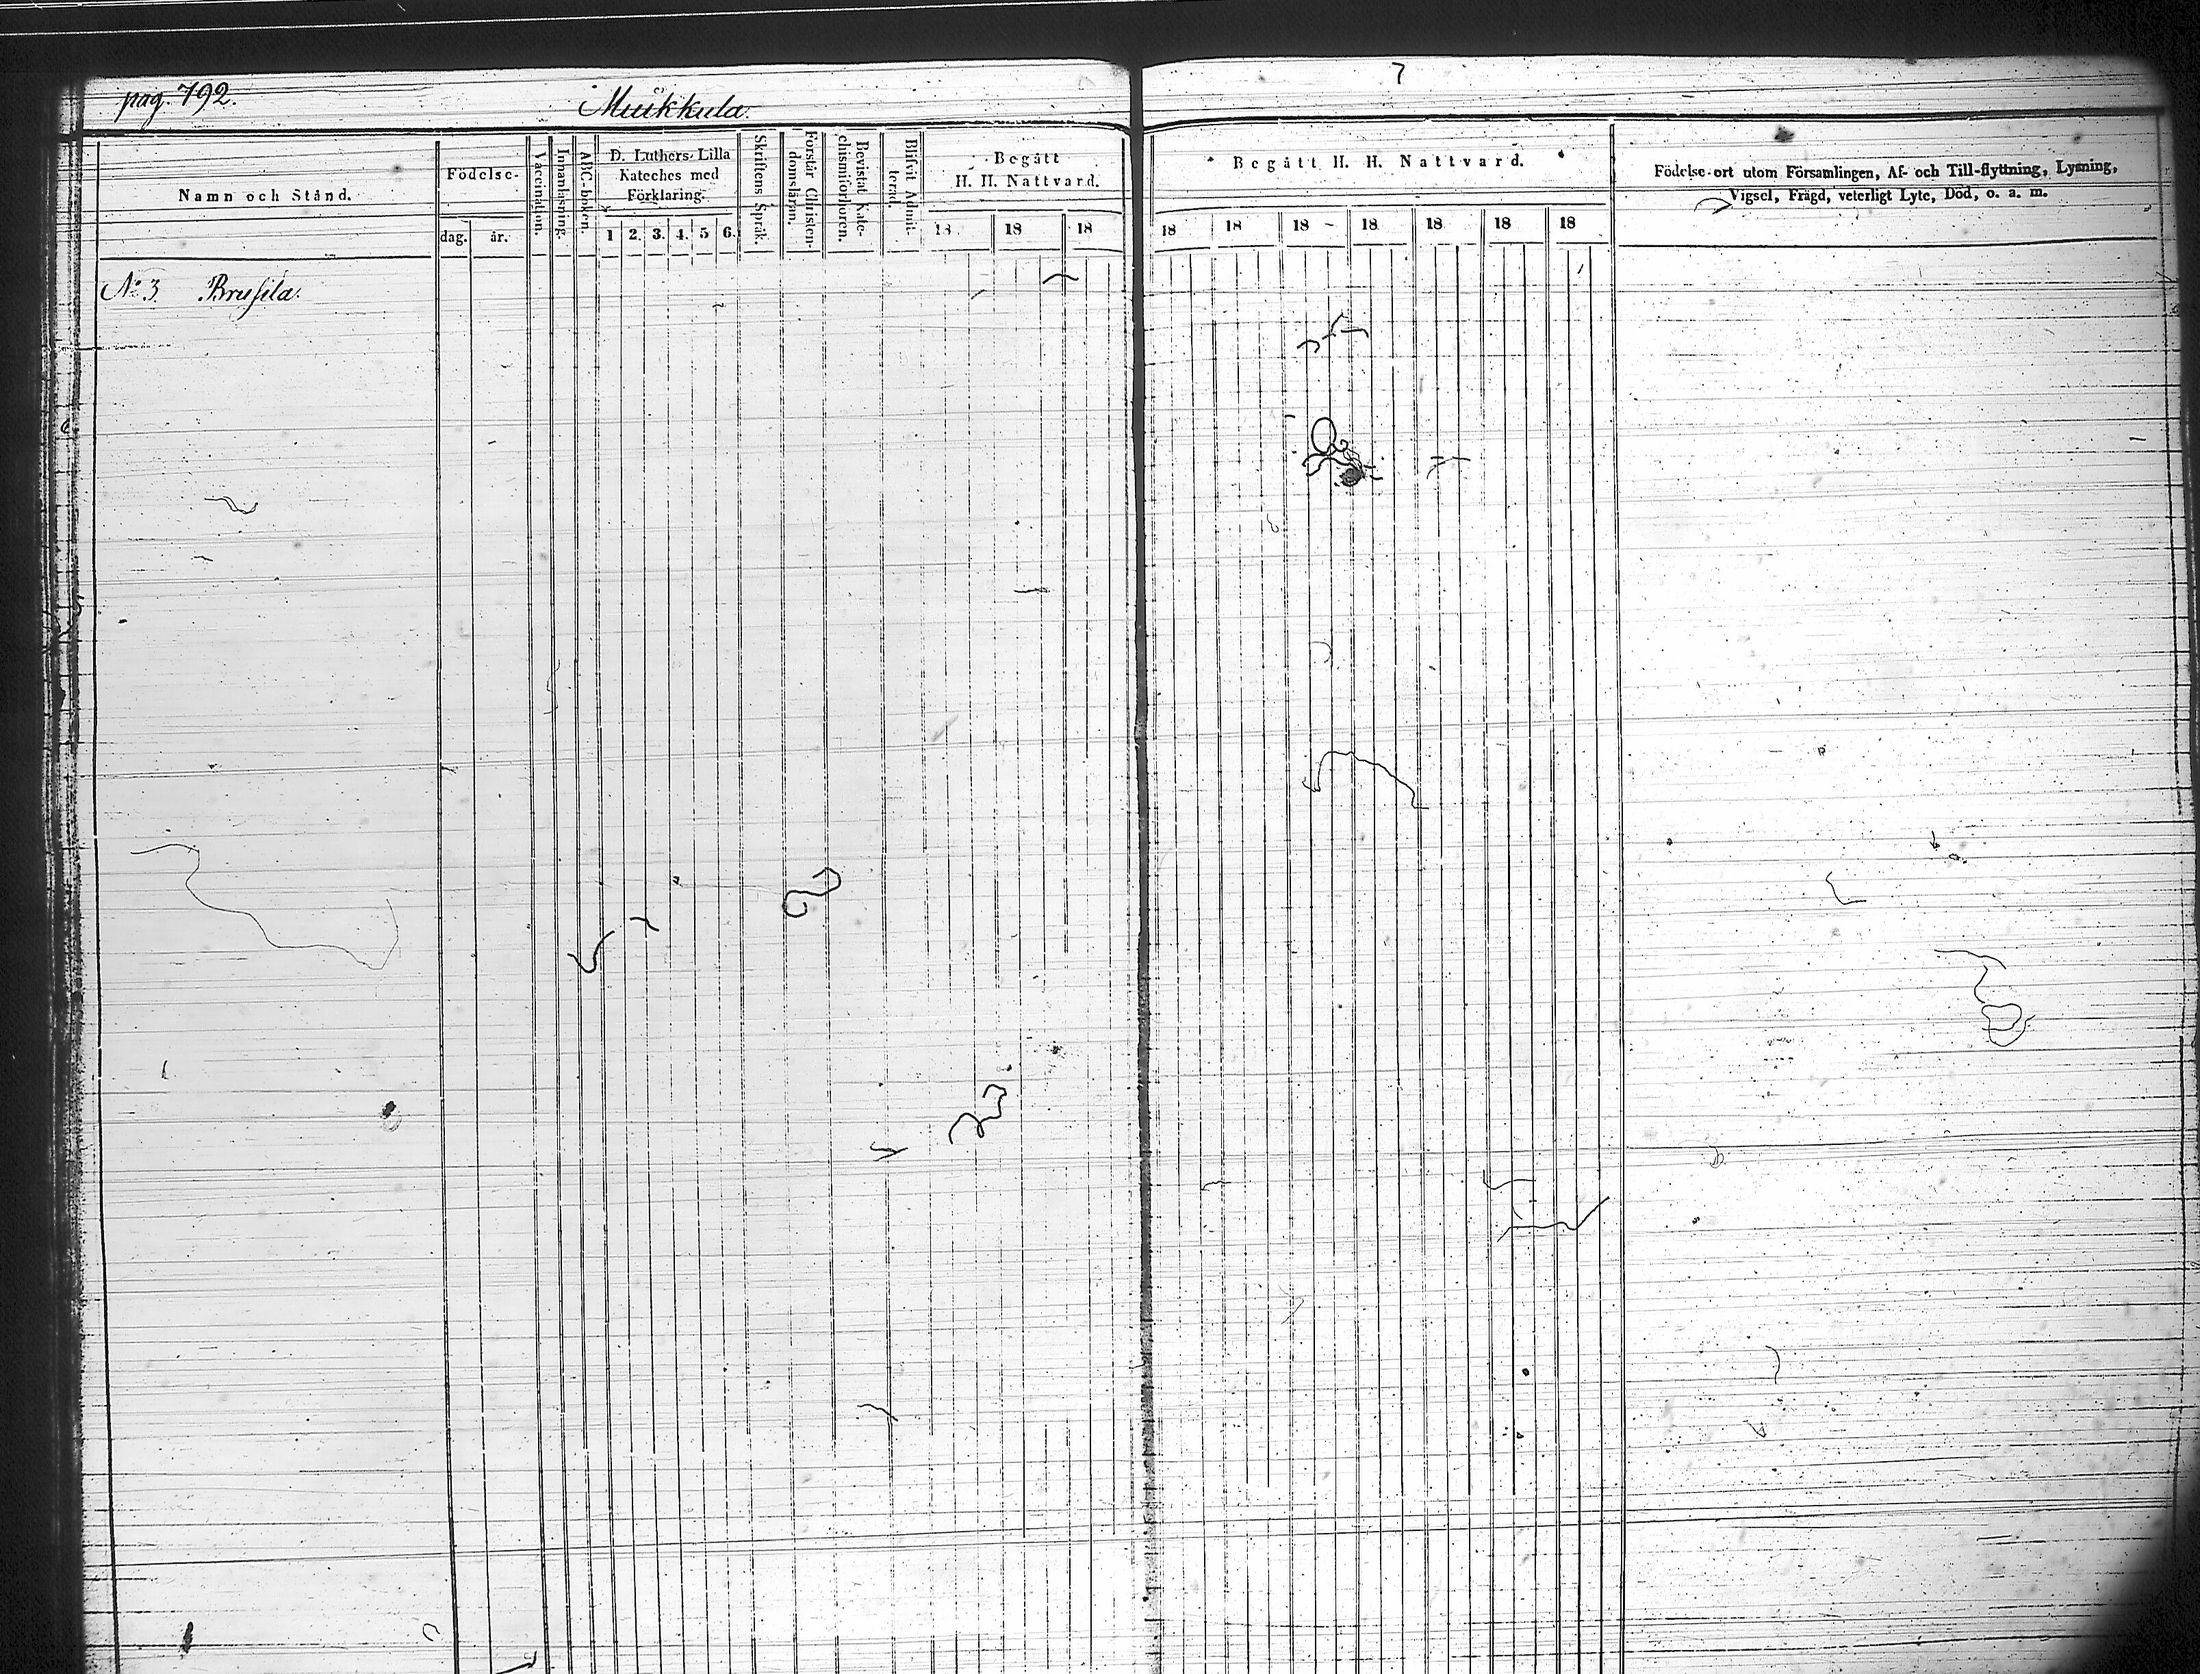 pag. 792.
Muikkula.
Namn och Stånd.
Födelse-
dag.
år.
Vaccination.
Innanläsning.
ABC-boken.
D. Luthers Lilla
Kateches med
Förklaring.
1 2. 3. 4. 5 6.
Skriftens Språk.
Förstår Christen-
domsläran.
Bevistat Kate-
chismiförhören.
Blifvit Admit-
terad.
Begått
H. H. Nattvard.
18 18 18
N:o 3. Brusila.
Begått H. H. Nattvard.
18 18 18 18 18 18 18
Födelse-ort utom Församlingen, Af- och Till-flyttning, Lysning,
Vigsel, Frägd, veterligt Lyte, Död, o. a. m.